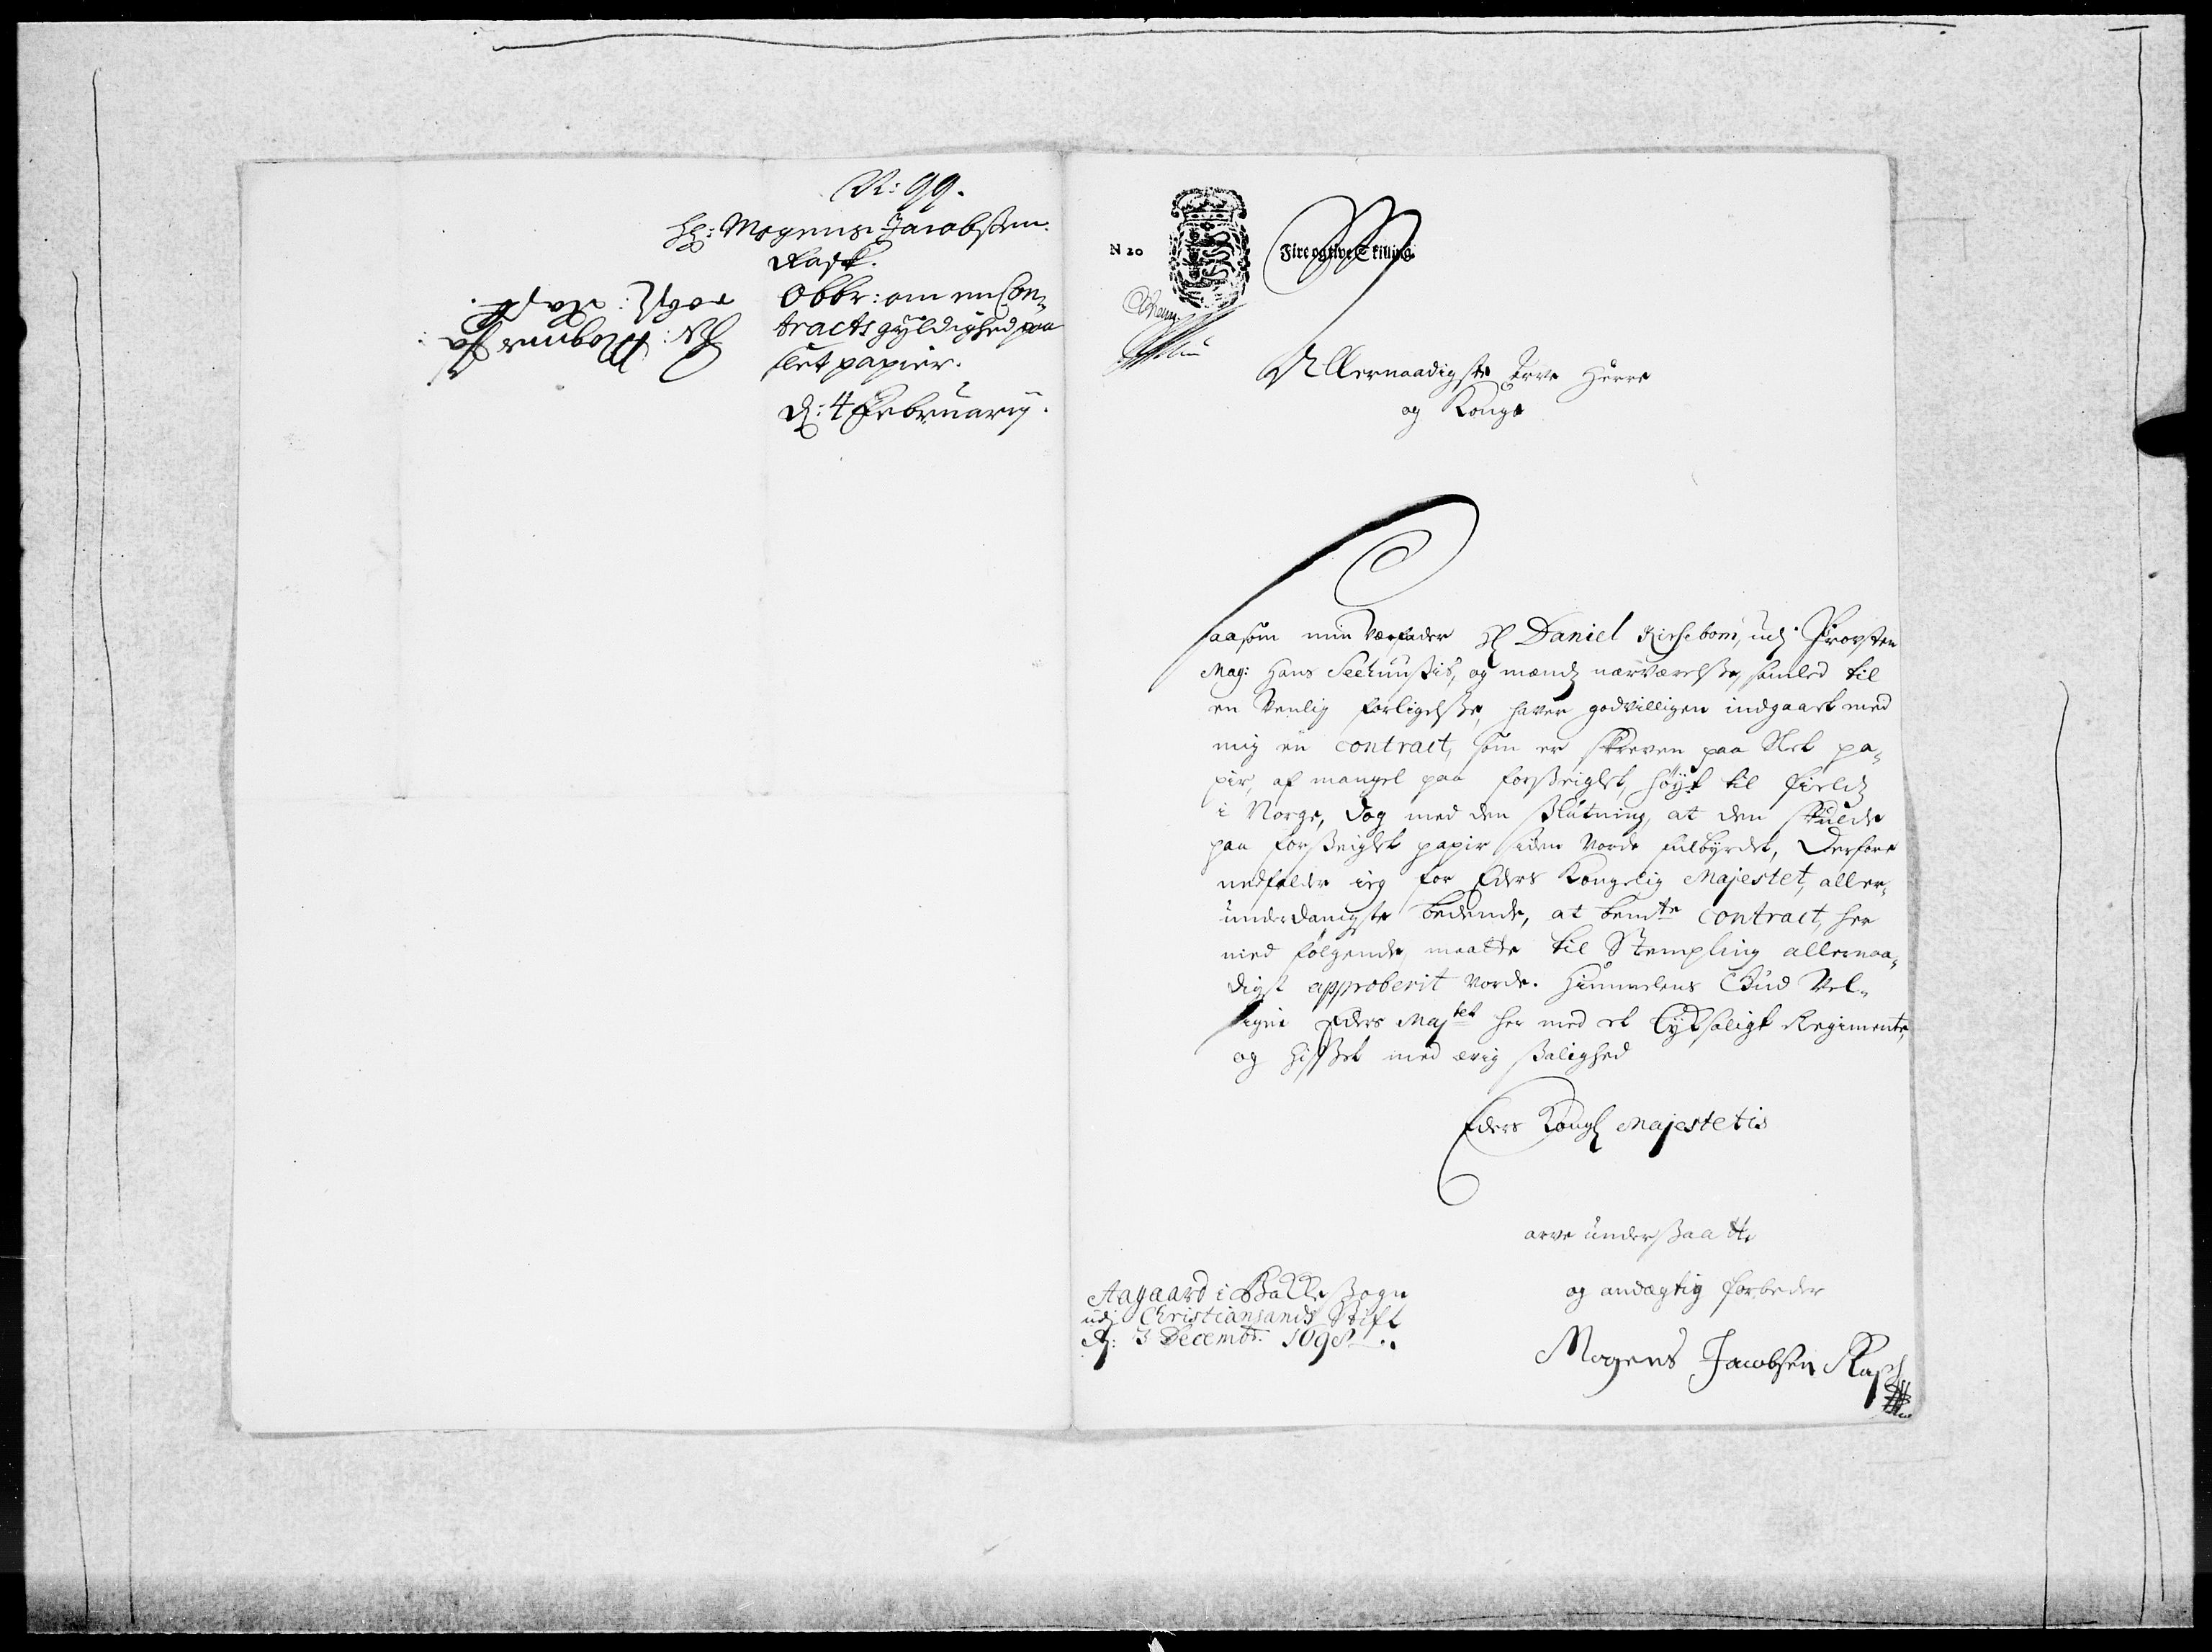 N: 99.
Hl: Mogens Jacobsøn
Rask.
Obbr: om en Con-
tracts gyldighed paa
slet papiir.
d: 4 Februarij.
Hr: Mogens Ja-
cobs: Rask.
N 20
Fire og tive Skilling
Allernaadigste Arve Herre
og Konge
Saasom min Værfader Hr Daniel Kirsebom, udj Provsten
Mag: Hans Seehuussis, og mænds nærværelsse, samled til
en Venlig forligelsse, haver godvilligen indgaaet med
mig en contract, som er skreven paa Slet pa-
pir, af mangel paa forsseiglet, høyt til fields
i Norge, dog med den Slutning, at den skulde
paa forsseiglet papir siden vorde fulbyrdet, Derfore
nedfalder ieg for Eders Kongelig Majestet, aller-
underdanigste bedende, at bemte contract, her
med følgende, maatte til Stempling allernaa-
digst approberit vorde. Himmelens Gud Vel-
signe Eders Majtet her med et Lyksaligt Regimente,
og hisset med ævig Salighed
Eders Kongl Majestetis
arve underssaatte
og andægtig forbeder
Mogens Jacobsen Rasch
Aagaard i Balle Sogn
udj Christiansands Stift
d: 3 Decembr. 1698